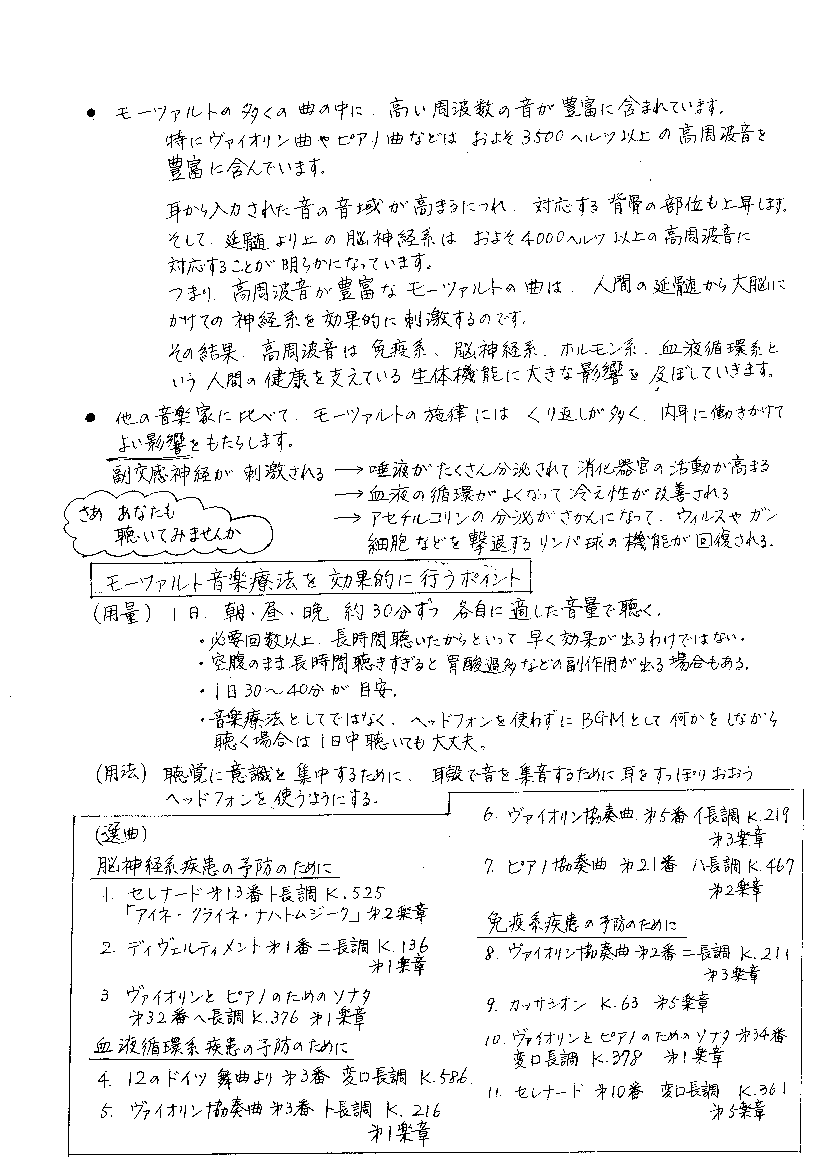 ● モーツァルトの多くの曲の中に、高い周波数の音が豊富に含まれています。
特にヴァイオリン曲やピアノ曲などは およそ3500ヘルツ以上の高周波音を
豊富に含んでいます。
耳から入力された音の音域が高まるにつれ、対応する背骨の部位も上昇します。
そして、延髄より上の脳神経系は およそ4000ヘルツ以上の高周波音に
対応することが明らかになっています。
つまり、高周波音が豊富なモーツァルトの曲は、人間の延髄から大脳に
かけての神経系を効果的に刺激するのです。
その結果、高周波音は免疫系、脳神経系、ホルモン系、血液循環系と
いう人間の健康を支えている生体機能に大きな影響を及ぼしていきます。
● 他の音楽家に比べて、モーツァルトの旋律には くり返しが多く、内耳に働きかけて
よい影響をもたらします。
副交感神経が刺激される → 唾液がたくさん分泌されて消化器官の活動が高まる
→ 血液の循環がよくなって冷え性が改善される
→ アセチルコリンの分泌がさかんになって、ウィルスやガン
細胞などを撃退するリンパ球の機能が回復される。
さあ あなたも
聴いてみませんか
モーツァルト音楽療法を効果的に行うポイント
(用量) 1日、朝・昼・晩 約30分ずつ 各自に適した音量で聴く。
・必要回数以上、長時間聴いたからといって早く効果が出るわけではない。
・空腹のまま長時間聴きすぎると胃酸過多などの副作用が出る場合もある。
・1日30〜40分が目安。
・音楽療法としてではなく、ヘッドフォンを使わずにBGMとして何かをしながら
聴く場合は1日中聴いても大丈夫。
(用法) 聴覚に意識を集中するために、耳殻で音を集音するために耳をすっぽりおおう
ヘッドフォンを使うようにする。
(選曲)
脳神経系疾患の予防のために
1. セレナード第13番ト長調 K.525
「アイネ・クライネ・ナハトムジーク」第2楽章
2. ディヴェルティメント第1番ニ長調 K.136
第1楽章
3 ヴァイオリンとピアノのためのソナタ
第32番ヘ長調 K.376 第1楽章
血液循環系疾患の予防のために
4. 12のドイツ舞曲より第3番 変ロ長調 K.586.
5. ヴァイオリン協奏曲第3番 ト長調 K. 216
第1楽章
6. ヴァイオリン協奏曲 第5番イ長調 K.219
第3楽章
7. ピアノ協奏曲 第21番 ハ長調 K.467
第2楽章
免疫系疾患の予防のために
8. ヴァイオリン協奏曲第2番ニ長調 K.211
第3楽章
9. カッサシオン K.63 第5楽章
10. ヴァイオリンとピアノのためのソナタ第34番
変ロ長調 K.378 第1楽章
11. セレナード 第10番 変ロ長調 K.361
第5楽章